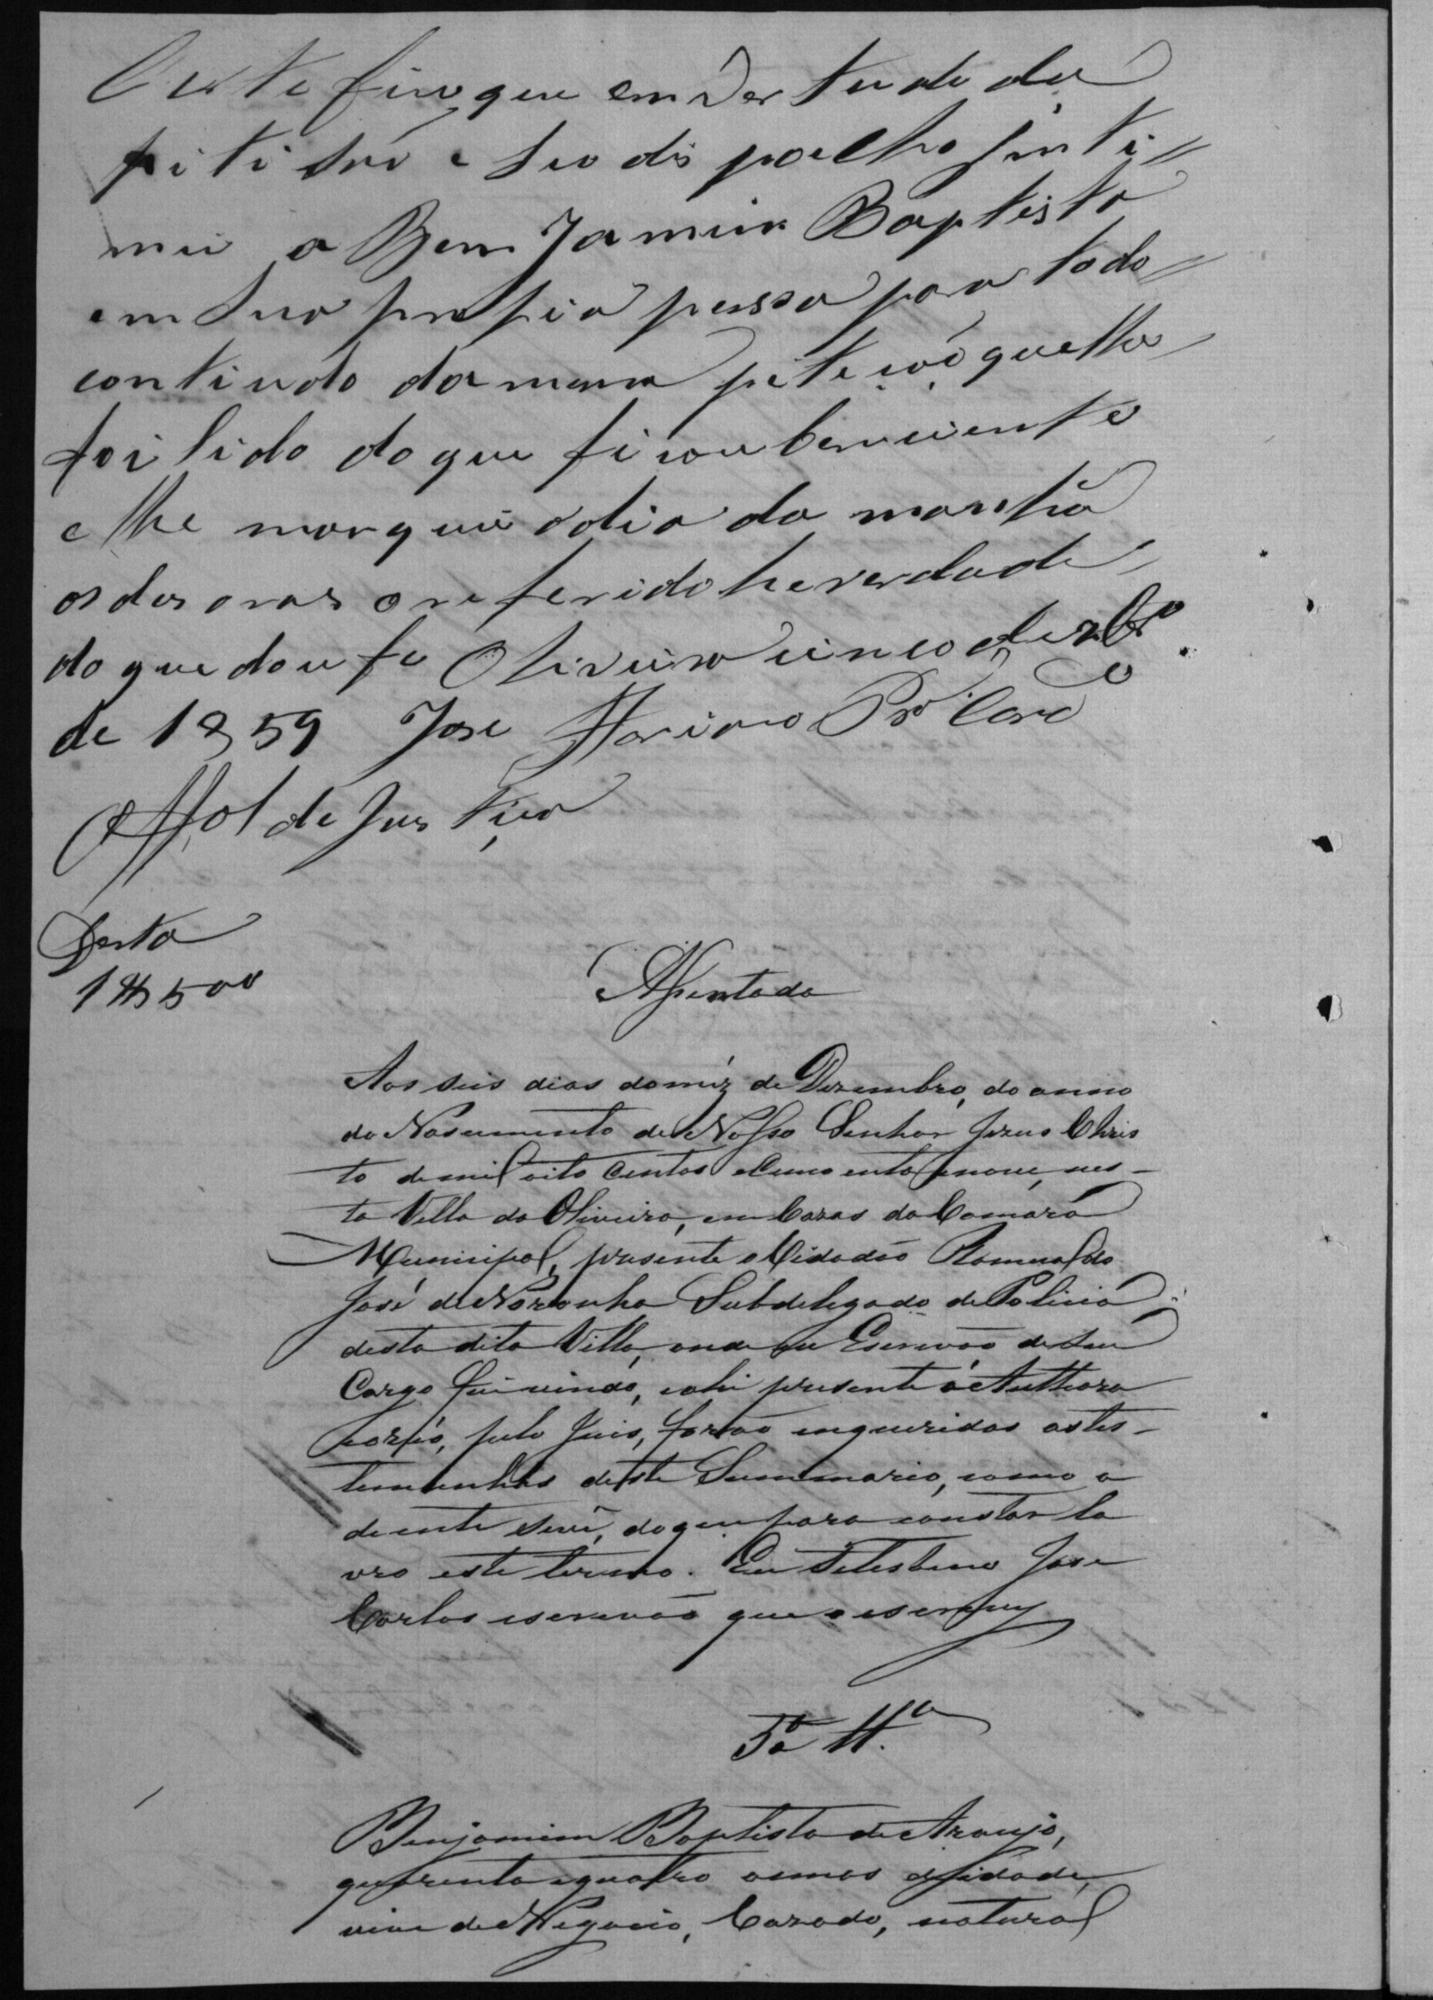 Certefico que em Vertude da
pitisaõ e seo dis pacho Jnti=
mei a BemJamim Baptista
em sua propia pessoa para todo=
contiudo da mesma piteçaõ que lhe
foi lido do que ficou bem ciente
e lhe marquei o dia da manhã
as des oras o referido he verdade
do que dou fe Oliveira cinco de Dezbrº
de 1859 Jose Mariano
Offal de Justiça
Desta
1$500
Assentada
Aos seis dias do mêz de Dezembro, do anno
do Nascimento de Nosso Senhor Jezus Chris
to de mil oito Centos e Cincoenta e nove, nes-
ta Villa da Oliveira, em Cazas da Camara
Municipal, prezente o Cidadão Romualdo
José de Noronha Subdelegado de Policia
desta dita Villa, onde eu Escrivão de seu
Cargo fui vindo, e ahi prezente a Authora
pelo Juis, forão inqueridas as tes-
temunhas deste Summario, como a
diente se vê, do que para constar la
vro este termo. Eu Selestino Jose
Carlos escrivão que o escrevy
5ª Ttª
Benjamim Baptista de Araujo,
quarenta e quatro annos de idade,
vive de Negocio, Cazado, natural